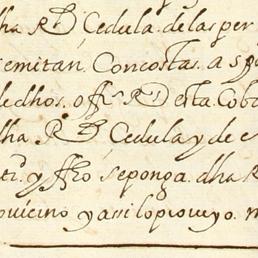 dha Rˡ Cedula. de las per
remitan. Con costas. a s
de dhos. offˢ Rˡ esta. Cob
dha Rˡ Cedula y de e
y ffro se ponga. dha R
y assi lo proveyo.